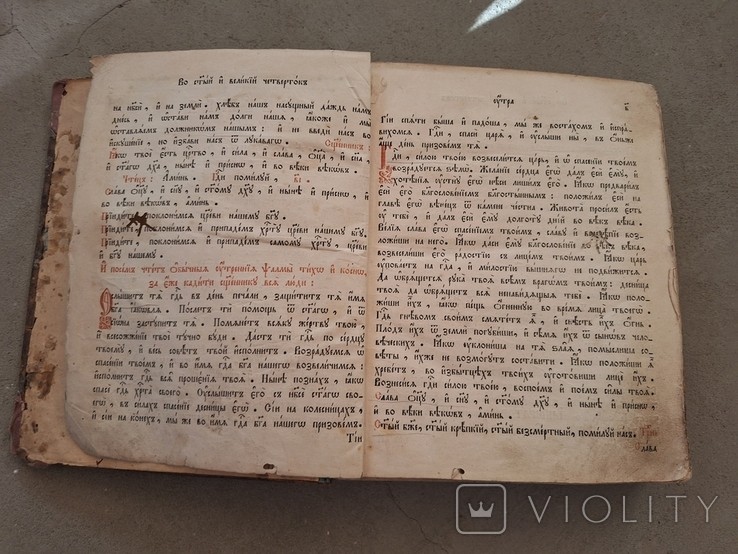 Во ст҃ы́й и҆ вели́кїй четверто́къ
на нб҃сѝ, и҆ на землѝ. хлѣ́бъ на́шъ насу́щный да́ждь на́мъ
дне́сь, и҆ ѡ҆ста́ви на́мъ до́лги на́шѧ, ꙗ҆́коже и҆ мы̀
ѡ҆ставлѧ́емъ должникѡ́мъ на́шымъ: и҆ не введѝ на́съ во
и҆скуше́нїе, но и҆зба́ви на́съ ѿ лука́вагѡ. Сщ҃е́нникъ:
Ꙗ҆́кѡ твоѐ є҆́сть црⷭ҇тво, и҆ си́ла, и҆ сла́ва, ѻ҆ц҃а̀, и҆ сн҃а,
и҆ ст҃а́гѡ дх҃а, ны́нѣ и҆ при́снѡ, и҆ во вѣ́ки вѣкѡ́въ.
Чте́цъ: А҆ми́нь. Гдⷭ҇и поми́луй, в҃і.
Сла́ва ѻ҆ц҃ꙋ̀, и҆ сн҃ꙋ, и҆ ст҃о́мꙋ дх҃ꙋ, и҆ ны́нѣ и҆ при́снѡ, и҆
во вѣ́ки вѣкѡ́въ, а҆ми́нь.
Прїиди́те поклони́мсѧ цр҃е́ви на́шемꙋ бг҃ꙋ.
Прїиди́те, поклони́мсѧ и҆ припаде́мъ хрⷭ҇тꙋ̀ цр҃е́ви на́шемꙋ бг҃ꙋ.
Прїиди́те, поклони́мсѧ и҆ припаде́мъ самомꙋ̀ хрⷭ҇тꙋ̀, цр҃е́ви
и҆ бг҃ꙋ на́шемꙋ.
И҆ посе́мъ чте́тъ ѻ҆бы̑чныѧ ᲂу҆́трєннїѧ ѱалмы̀ ти́хѡ и҆ ко́снѡ,
за є҆́же кади́ти сщ҃е́нникꙋ всѧ̑ лю́ди:
Оу҆слы́шитъ тѧ̀ гдⷭ҇ь въ де́нь печа́ли, защи́титъ тѧ̀ и҆́мѧ
бг҃а і҆а́кѡвлѧ. По́слетъ тѝ по́мощь ѿ ст҃а́гѡ, и҆ ѿ
сїѡ́на застꙋ́питъ тѧ̀. Помѧне́тъ всѧ́кꙋ же́ртвꙋ твою̀,
и҆ всесожже́нїе твоѐ тꙋ́чно бꙋ́ди. Да́стъ тѝ гдⷭ҇ь по се́рдцꙋ
твоемꙋ̀, и҆ ве́сь совѣ́тъ тво́й и҆спо́лнитъ. Возра́дꙋемсѧ ѡ҆
спасе́нїи твое́мъ, и҆ во и҆́мѧ гдⷭ҇а бг҃а на́шегѡ возвели́чимсѧ:
и҆спо́лнитъ гдⷭ҇ь всѧ̑ проше́нїѧ твоѧ̑. Ны́нѣ позна́хъ, ꙗ҆́кѡ
спасѐ гдⷭ҇ь хрⷭ҇та̀ своего̀. Оу҆слы́шитъ є҆го̀ съ нб҃сѐ ст҃а́гѡ сво-
егѡ̀: въ си́лахъ спасе́нїе десни́цы є҆гѡ̀. Сі́и на колесни́цахъ,
и҆ сі́и на ко́нехъ, мы́ же во и҆́мѧ гдⷭ҇а бг҃а на́шегѡ призове́мъ.
Ті́и
ᲂу҆́тра
в҃
Ті́и спѧ́ти бы́ша и҆ падо́ша, мы́ же воста́хомъ и҆ и҆спра́-
вихомсѧ. Гдⷭ҇и, спасѝ царѧ̀, и҆ ᲂу҆слы́ши ны̀, во́ньже
а҆́ще де́нь призове́мъ тѧ̀.
Гдⷭ҇и, си́лою твое́ю возвесели́тсѧ ца́рь, и҆ ѡ҆ спасе́нїи твое́мъ
возра́дꙋетсѧ ѕѣлѡ̀. Жела́нїе се́рдца є҆гѡ̀ да́лъ є҆сѝ є҆мꙋ̀, и҆
хотѣ́нїѧ ᲂу҆стнꙋ̀ є҆гѡ̀ нѣ́си лиши́лъ є҆го̀. Ꙗ҆́кѡ предвари́лъ
є҆сѝ є҆го̀ благослове́нїемъ бл҃госты́ннымъ: положи́лъ є҆сѝ на
главѣ̀ є҆гѡ̀ вѣне́цъ ѿ ка́мени че́стна. Живота̀ проси́лъ є҆́сть
ᲂу҆ тебѐ, и҆ да́лъ є҆сѝ є҆мꙋ̀ долготꙋ̀ дні́й во вѣ́къ вѣ́ка.
Ве́лїѧ сла́ва є҆гѡ̀ спасе́нїемъ твои́мъ, сла́вꙋ и҆ велелѣ́пїе воз-
ложи́ши на него̀. Ꙗ҆́кѡ да́си є҆мꙋ̀ благослове́нїе во вѣ́къ вѣ́ка,
возвесели́ши є҆го̀ ра́достїю съ лице́мъ твои́мъ. Ꙗ҆́кѡ ца́рь
ᲂу҆пова́етъ на гдⷭ҇а, и҆ млⷭ҇тїю вы́шнѧгѡ не подви́житсѧ.
Да ѡ҆брѧ́щетсѧ рꙋка̀ твоѧ̀ всѣ̑мъ врагѡ́мъ твои̑мъ: десни́ца
твоѧ̀ да ѡ҆брѧ́щетъ всѧ̑ ненави́дѧщыѧ тебѐ. Ꙗ҆́кѡ поло-
жи́ши и҆̀хъ, ꙗ҆́кѡ пе́щь ѻ҆́гненнꙋю во вре́мѧ лица̀ твоегѡ̀.
Гдⷭ҇ь гнѣ́вомъ свои́мъ смѧте́тъ ѧ҆̀, и҆ снѣ́сть и҆̀хъ ѻ҆́гнь.
Пло́дъ и҆́хъ ѿ землѝ погꙋби́ши, и҆ сѣ́мѧ и҆́хъ ѿ сынѡ́въ чело-
вѣ́ческихъ. Ꙗ҆́кѡ ᲂу҆клони́ша на тѧ̀ ѕла̑ѧ, помы́слиша со-
вѣ́ты, и҆̀хже не возмо́гꙋтъ соста́вити. Ꙗ҆́кѡ положи́ши ѧ҆̀
хребе́тъ, во и҆збы́тцѣхъ твои́хъ ᲂу҆гото́виши лицѐ и҆́хъ.
Вознеси́сѧ гдⷭ҇и си́лою твое́ю, воспое́мъ и҆ пое́мъ си̑лы твоѧ̑.
Сла́ва ѻ҆ц҃ꙋ̀, и҆ сн҃ꙋ, и҆ ст҃о́мꙋ дх҃ꙋ, и҆ ны́нѣ и҆ при́снѡ,
и҆ во вѣ́ки вѣкѡ́въ, а҆ми́нь.
Ст҃ы́й бж҃е, ст҃ы́й крѣ́пкїй, ст҃ы́й безсме́ртный, поми́лꙋй на́съ.
Сла́ва
VIOLITY